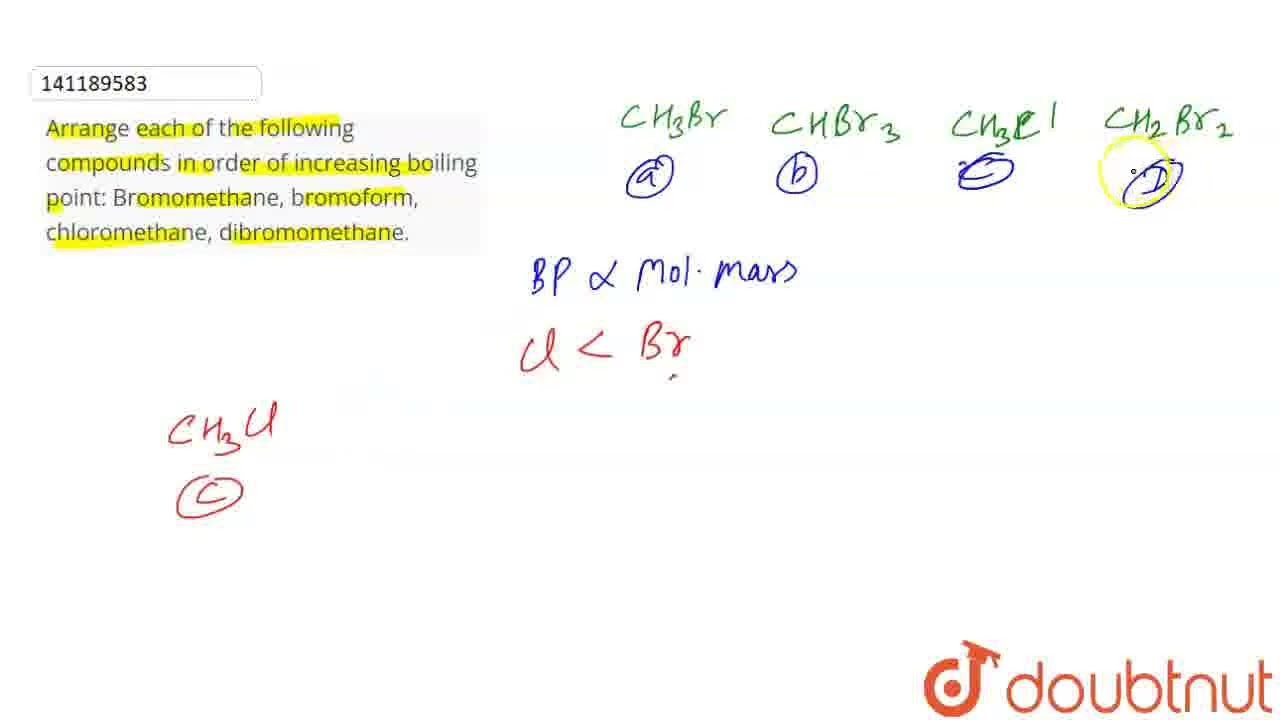 141189583
Arrange each of the following
compounds in order of increasing boiling
point: Bromomethane, bromoform,
chloromethane, dibromomethane.
CH₃Br CHBr₃ CH₃Cl CH₂Br₂
a b C D
BP ∝ Mol. mass
Cl < Br
CH₃Cl
C
doubtnut